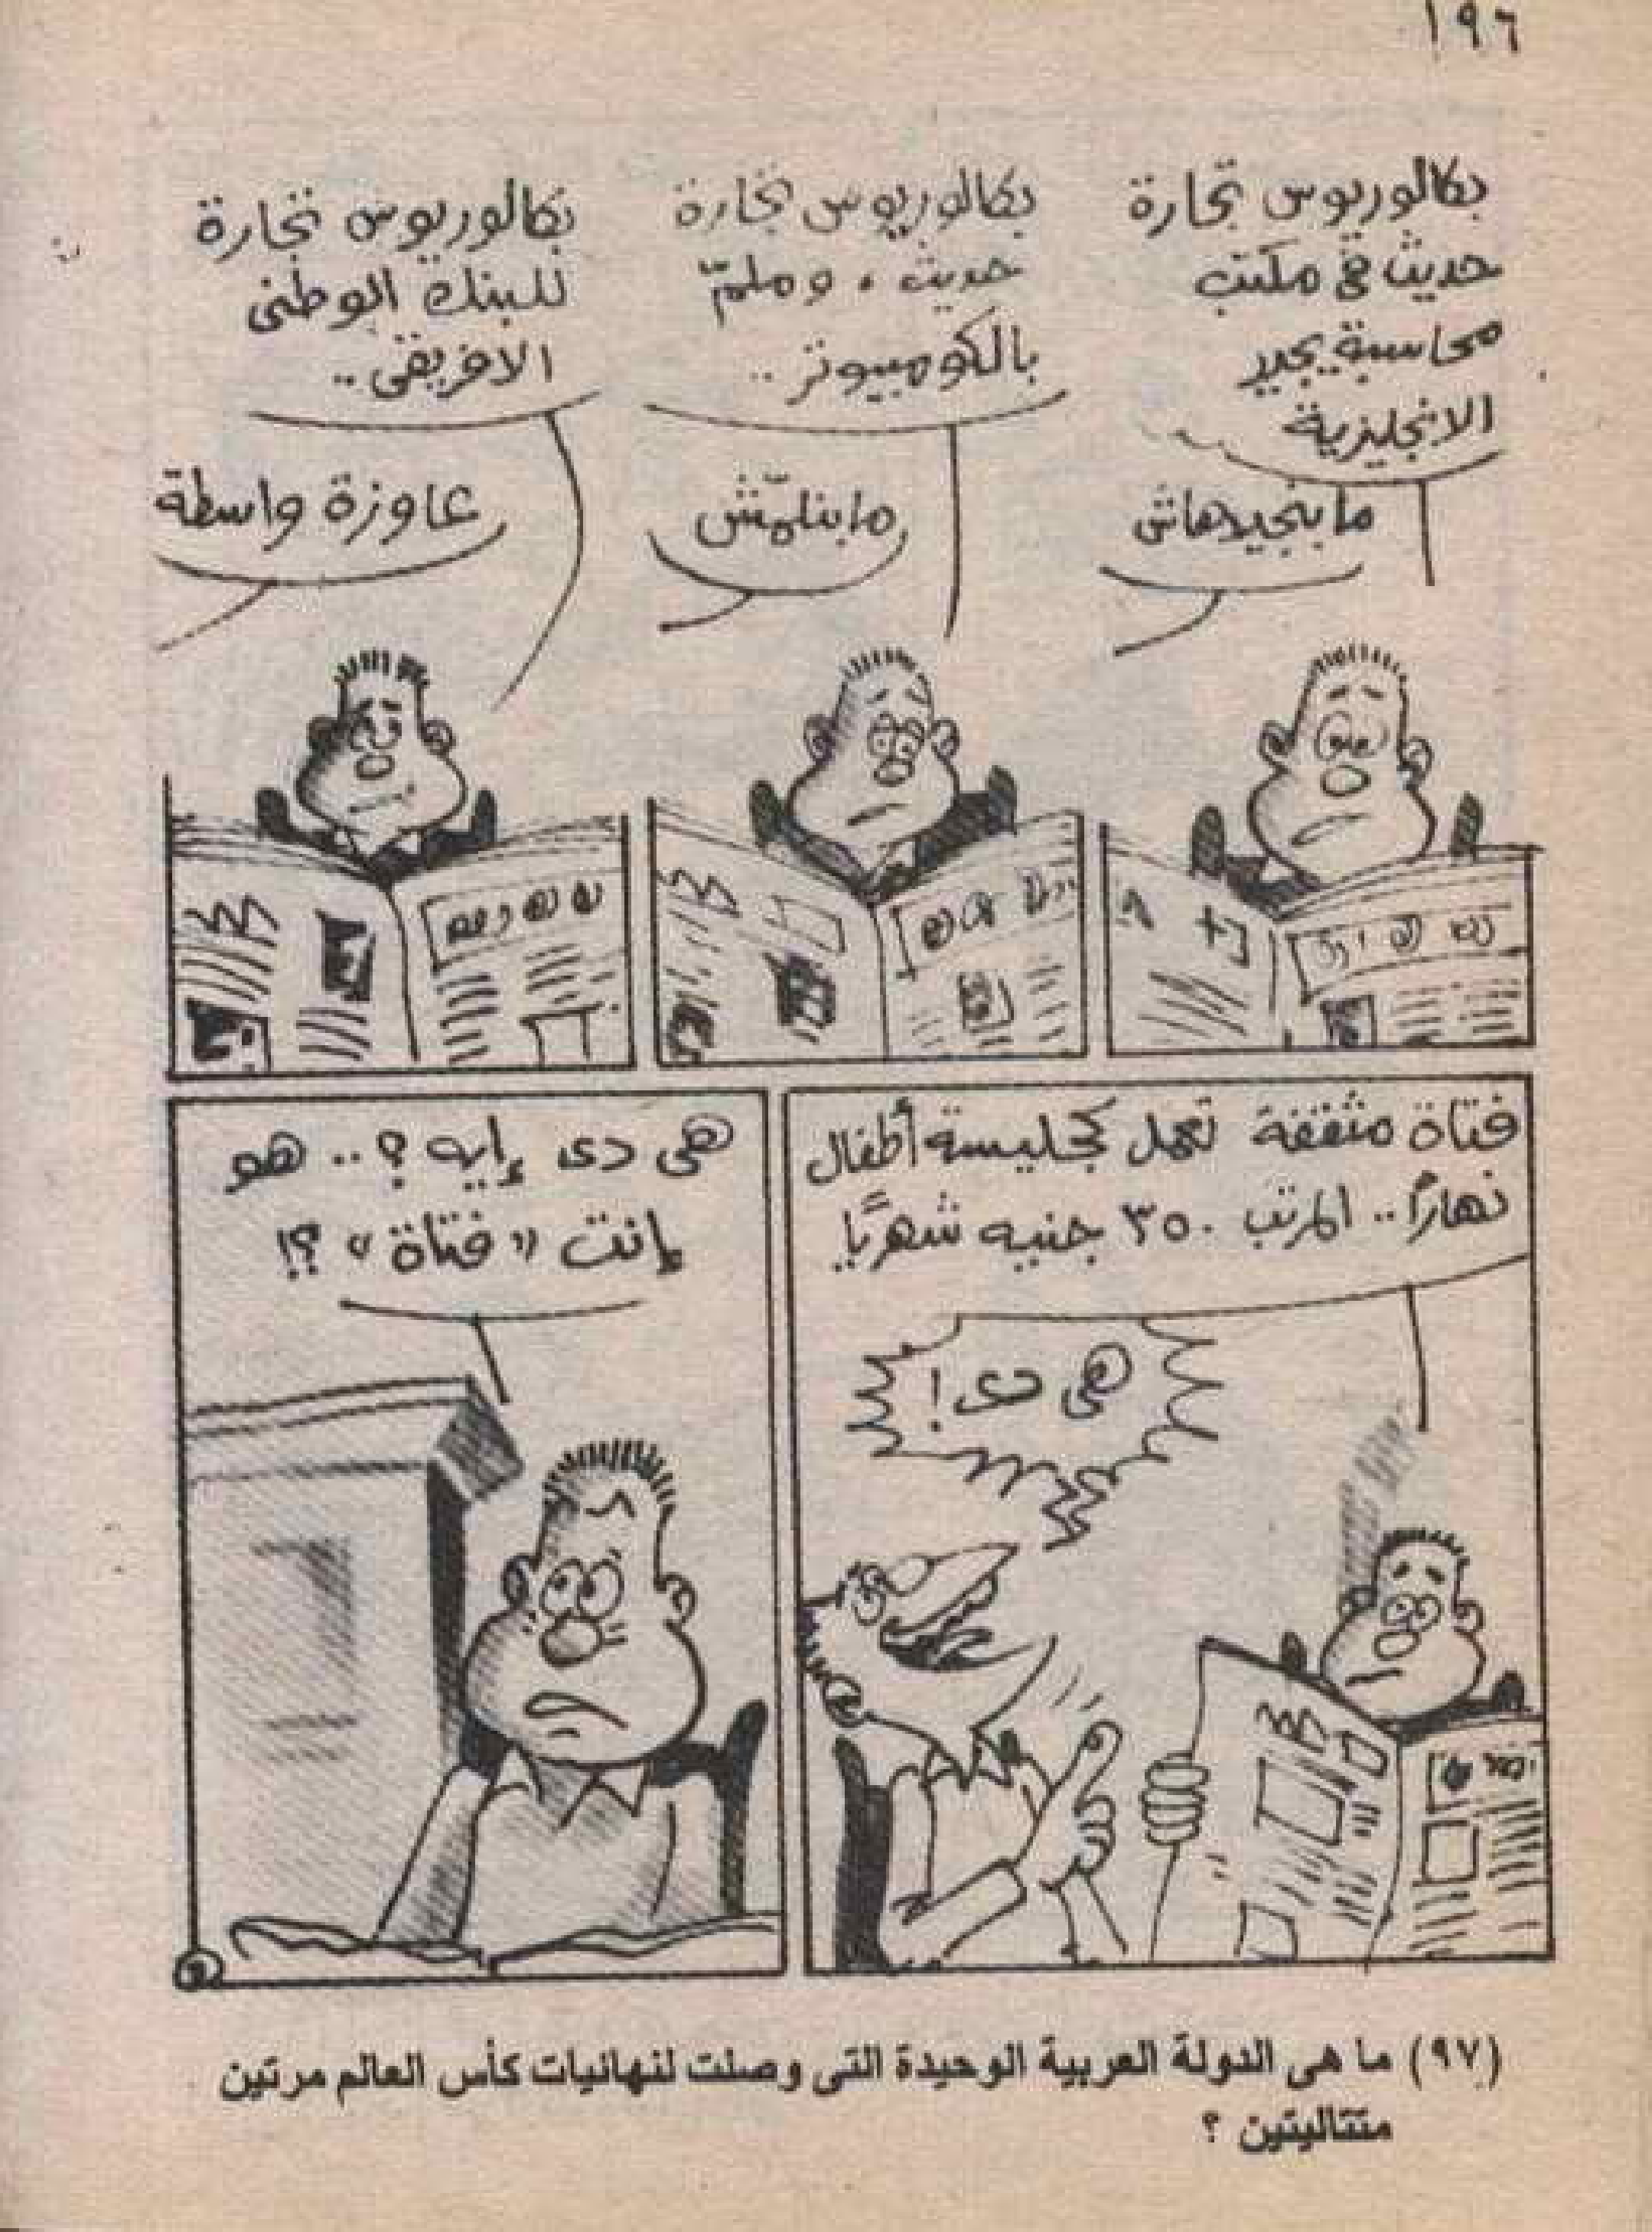 ١٩٦
بكالوريوس تجارة
حديث فى مكتب
محاسبة يجيد
الانجليزية
مابنجيدهاش
بكالوريوس تجارة
حديث، وملمّ
بالكومبيوتر..
مابنلمّش
بكالوريوس تجارة
للبنك الوطنى
الافريقى..
عاوزة واسطة
فتاة مثقفة تعمل كجليسة أطفال
نهارًا.. المرتب ٣٥٠ جنيه شهريًا
هى دى!
هى دى إيه؟.. هو
إنت «فتاة»؟!
(٩٧) ما هى الدولة العربية الوحيدة التى وصلت لنهائيات كأس العالم مرتين
متتاليتين ؟